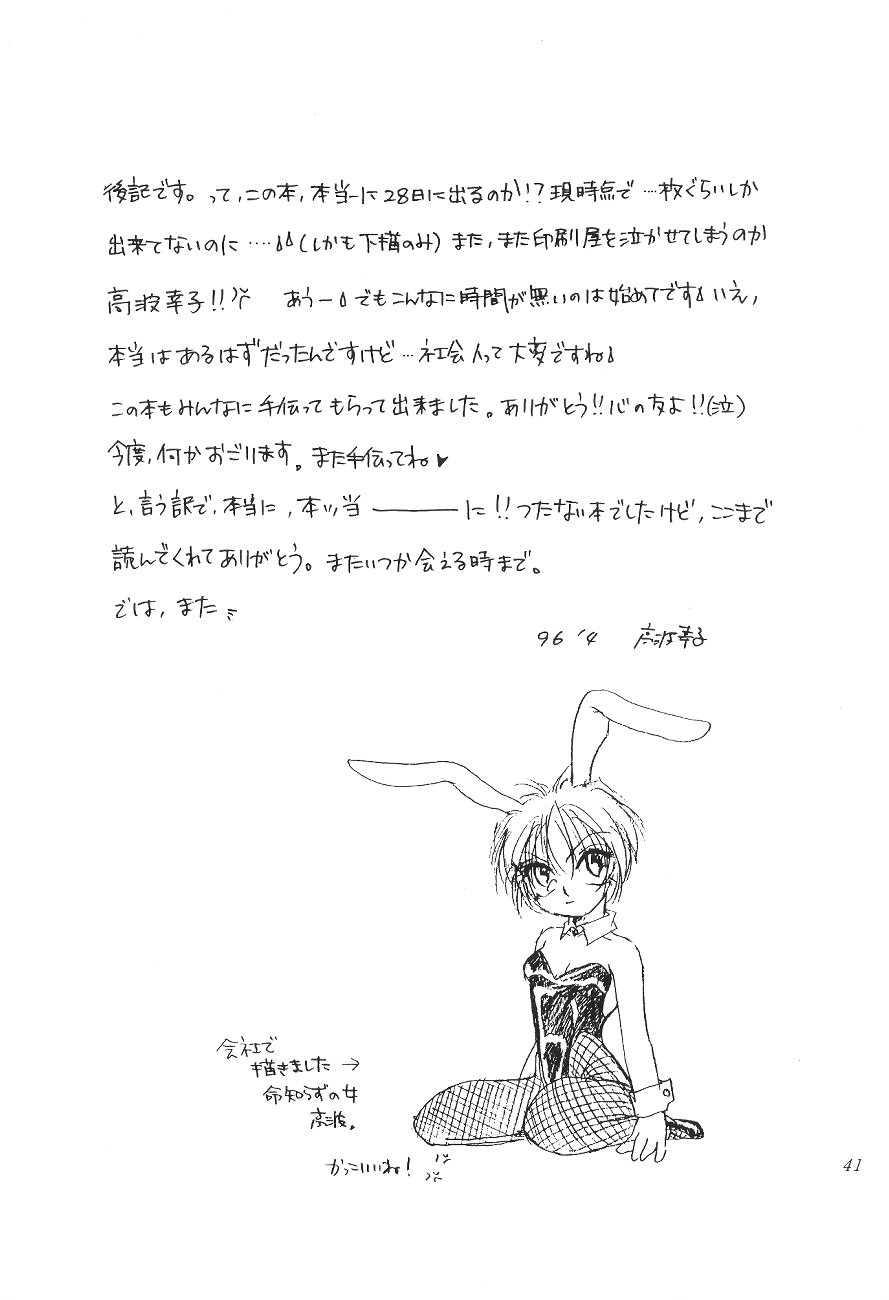 後記です。って、この本、本当に28日に出るのか!?現時点で…枚ぐらいしか
出来てないのに‥‥(しかも下描のみ)また、また印刷屋を泣かせてしまうのか
高波幸子!! あうーでもこんなに時間が無いのは始めてですいえ、
本当はあるはずだったんですけど…社会人って大変ですね
この本もみんなに手伝ってもらって出来ました。ありがとう!!心の友よ!!(泣)
今度、何かおごります。また手伝ってね♥
と、言う訳で、本当に、本ッ当――――に!!つたない本でしたけど、ここまで
読んでくれてありがとう。またいつか会える時まで。
では、また
96 '4 高波幸子
会社で
描きました→
命知らずの女
高波。
かっこいいね!
41